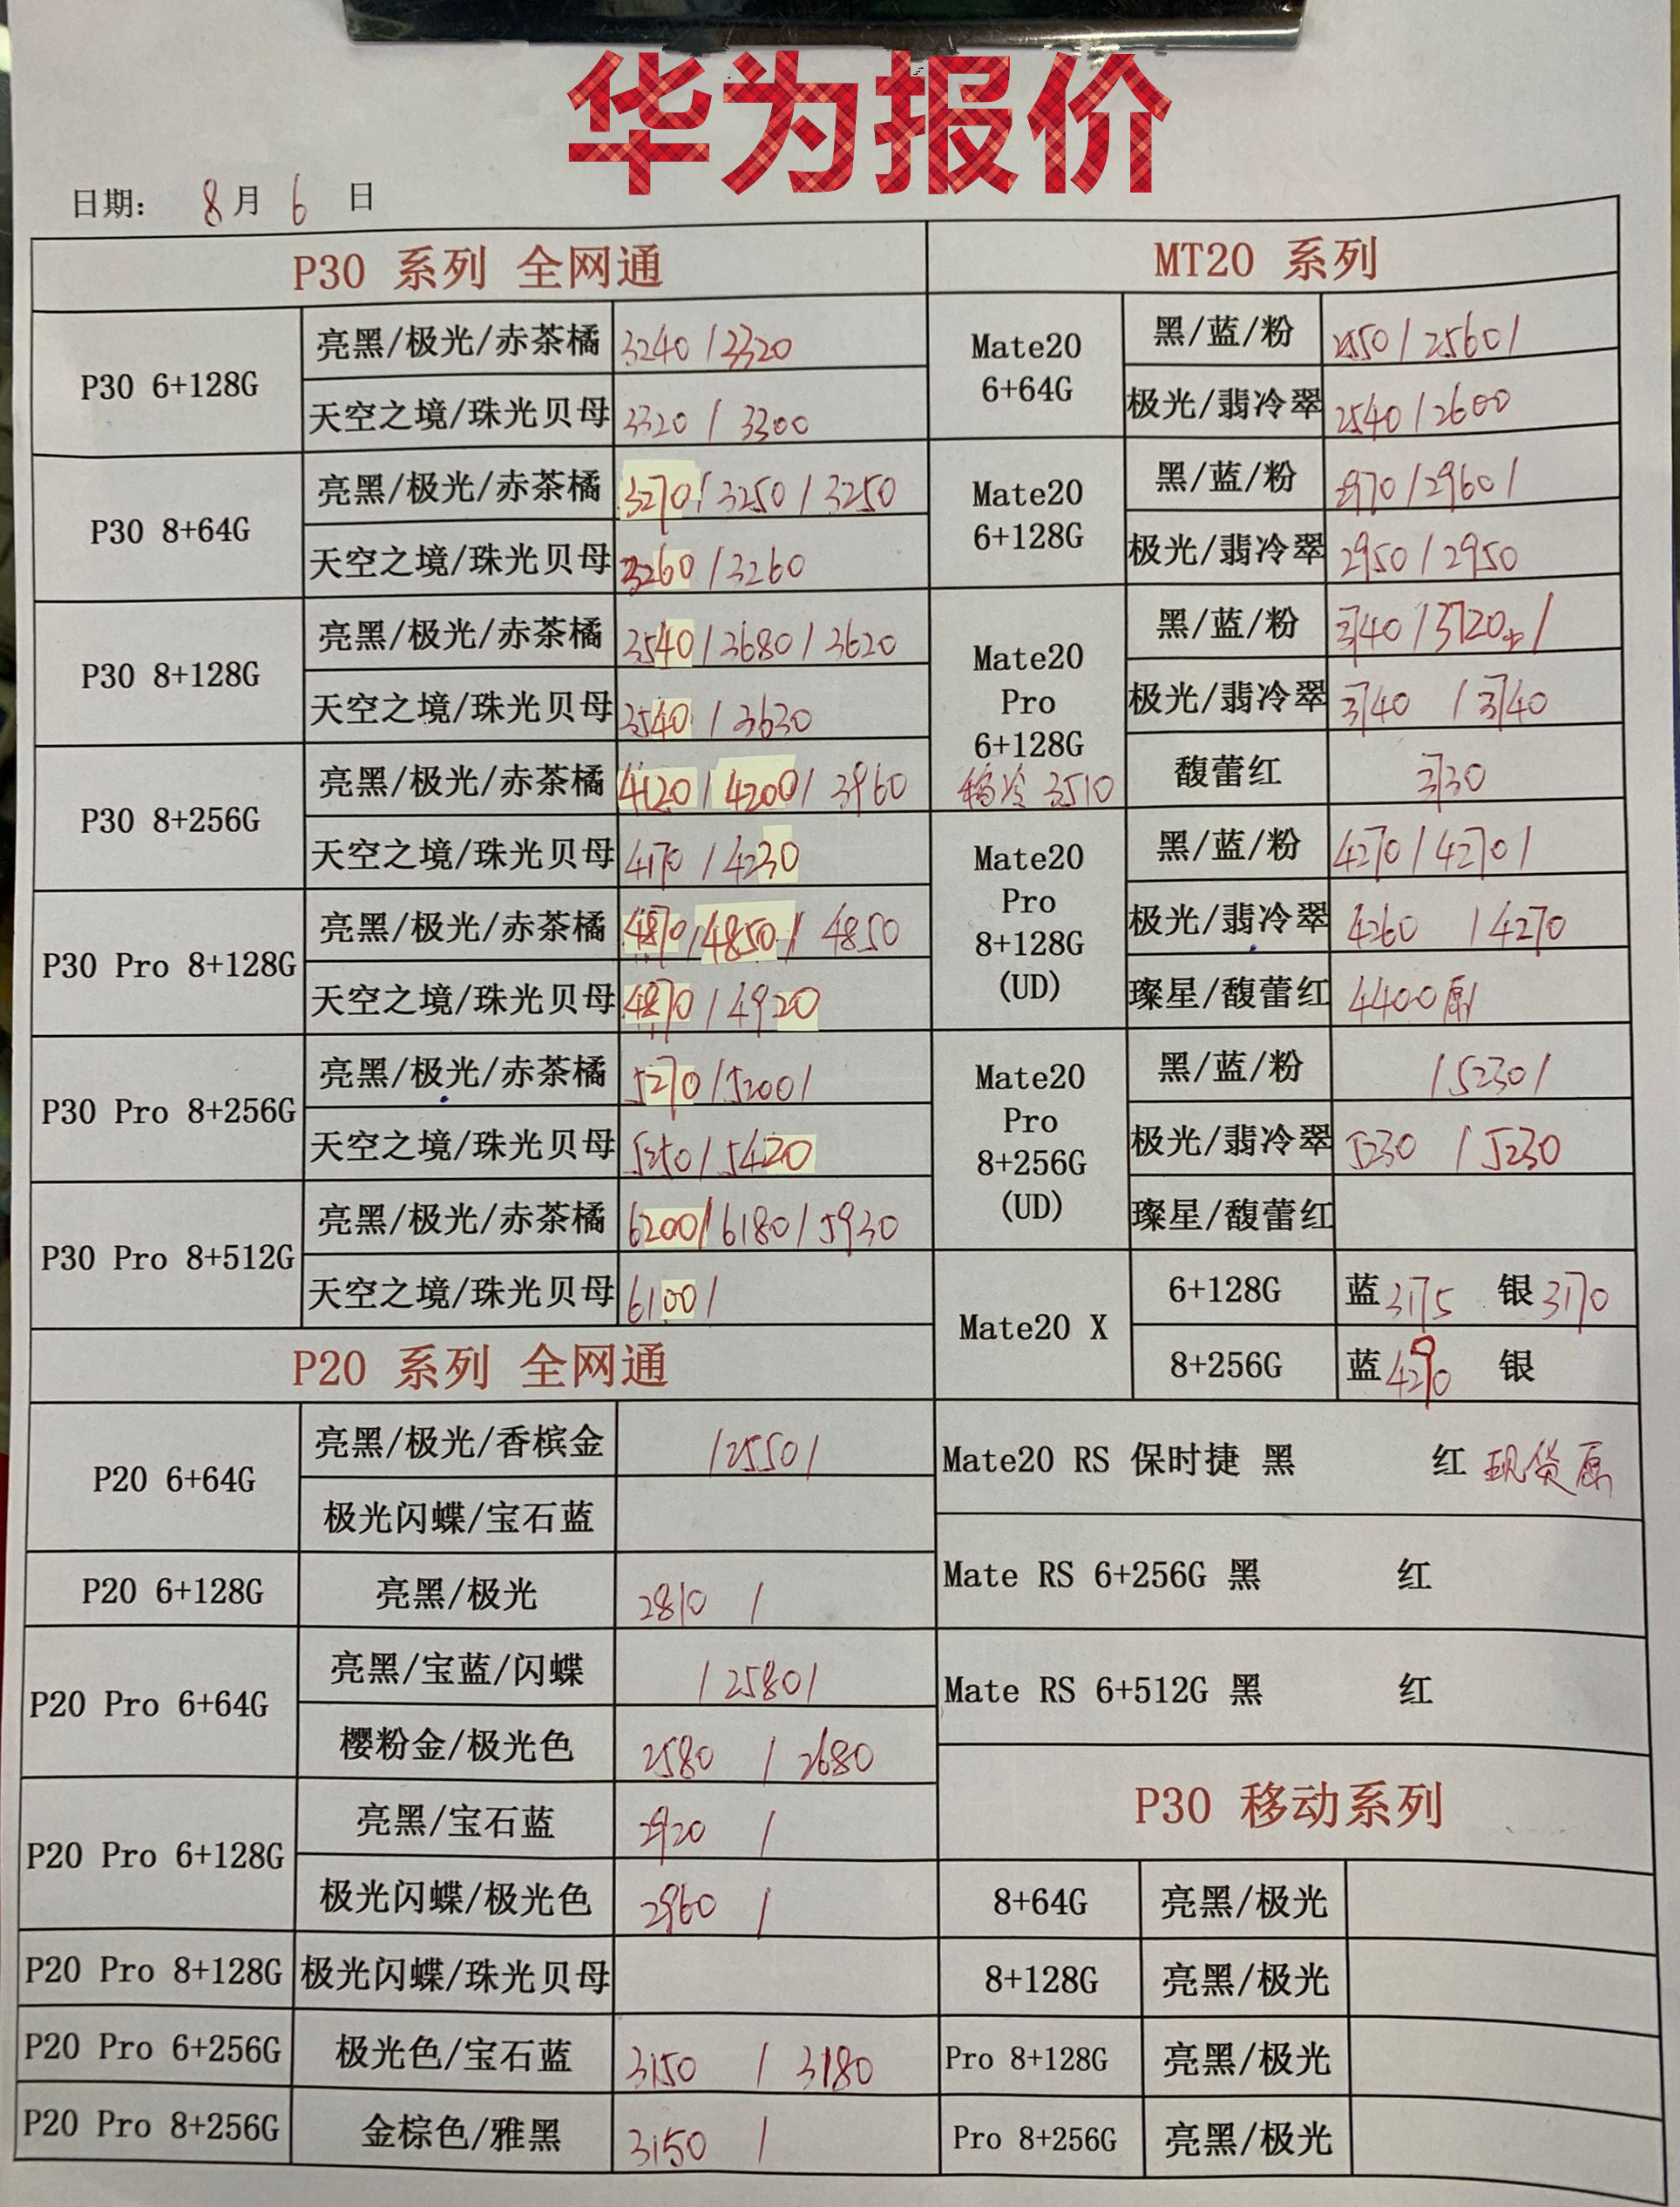 华为报价
日期： 8月 6 日
P30 系列 全网通
P30 6+128G
亮黑/极光/赤茶橘 3240 / 3320
天空之境/珠光贝母 3320 / 3300
P30 8+64G
亮黑/极光/赤茶橘 3270 / 3250 / 3250
天空之境/珠光贝母 3260 / 3260
P30 8+128G
亮黑/极光/赤茶橘 3540 / 3680 / 3620
天空之境/珠光贝母 3540 / 3630
P30 8+256G
亮黑/极光/赤茶橘 4120 / 4200 / 3960
天空之境/珠光贝母 4170 / 4230
P30 Pro 8+128G
亮黑/极光/赤茶橘 4870 / 4850 / 4850
天空之境/珠光贝母 4870 / 4920
P30 Pro 8+256G
亮黑/极光/赤茶橘 5270 / 5200 /
天空之境/珠光贝母 5250 / 5420
P30 Pro 8+512G
亮黑/极光/赤茶橘 6200 / 6180 / 5930
天空之境/珠光贝母 6100 /
P20 系列 全网通
P20 6+64G
亮黑/极光/香槟金 / 2550 /
极光闪蝶/宝石蓝
P20 6+128G 亮黑/极光 2810 /
P20 Pro 6+64G
亮黑/宝蓝/闪蝶 / 2580 /
樱粉金/极光色 2580 / 2680
P20 Pro 6+128G
亮黑/宝石蓝 2920 /
极光闪蝶/极光色 2960 /
P20 Pro 8+128G 极光闪蝶/珠光贝母
P20 Pro 6+256G 极光色/宝石蓝 3150 / 3180
P20 Pro 8+256G 金棕色/雅黑 3150 /
MT20 系列
Mate20
6+64G
黑/蓝/粉 2550 / 2560 /
极光/翡冷翠 2540 / 2600
Mate20
6+128G
黑/蓝/粉 2970 / 2960 /
极光/翡冷翠 2950 / 2950
Mate20
Pro
6+128G
3510
黑/蓝/粉 3140 / 3120 /
极光/翡冷翠 3140 / 3140
馥蕾红 3130
Mate20
Pro
8+128G
(UD)
黑/蓝/粉 4270 / 4270 /
极光/翡冷翠 4260 / 4270
璨星/馥蕾红 4400 原/
Mate20
Pro
8+256G
(UD)
黑/蓝/粉 / 5230 /
极光/翡冷翠 5230 / 5230
璨星/馥蕾红
Mate20 X
6+128G 蓝 3175 银 3170
8+256G 蓝 4290 银
Mate20 RS 保时捷 黑 红 现货原
Mate RS 6+256G 黑 红
Mate RS 6+512G 黑 红
P30 移动系列
8+64G 亮黑/极光
8+128G 亮黑/极光
Pro 8+128G 亮黑/极光
Pro 8+256G 亮黑/极光